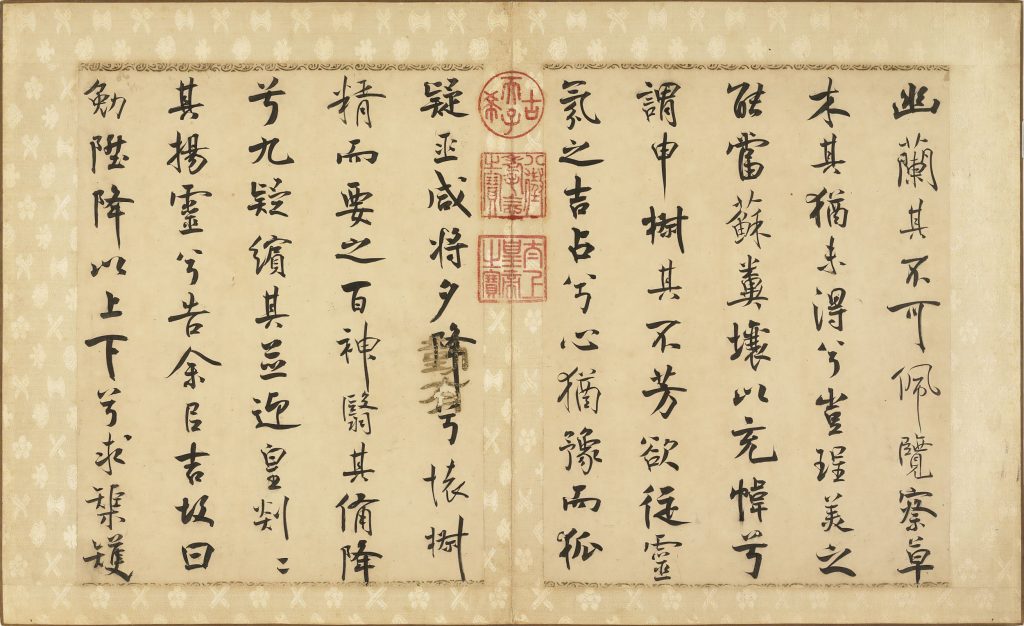 幽蘭其不可佩覽察草
木其猶未得兮豈珵美之
能當蘇糞壤以充幃兮
謂申椒其不芳欲從靈
氛之吉占兮心猶豫而狐
古希天子
八徵耄念之寶
太上皇帝之寶
疑巫咸將夕降兮懷椒
精而要之百神翳其備降
兮九疑繽其並迎皇剡〻
其揚靈兮告余㠯吉故曰
勉陞降以上下兮求榘矱